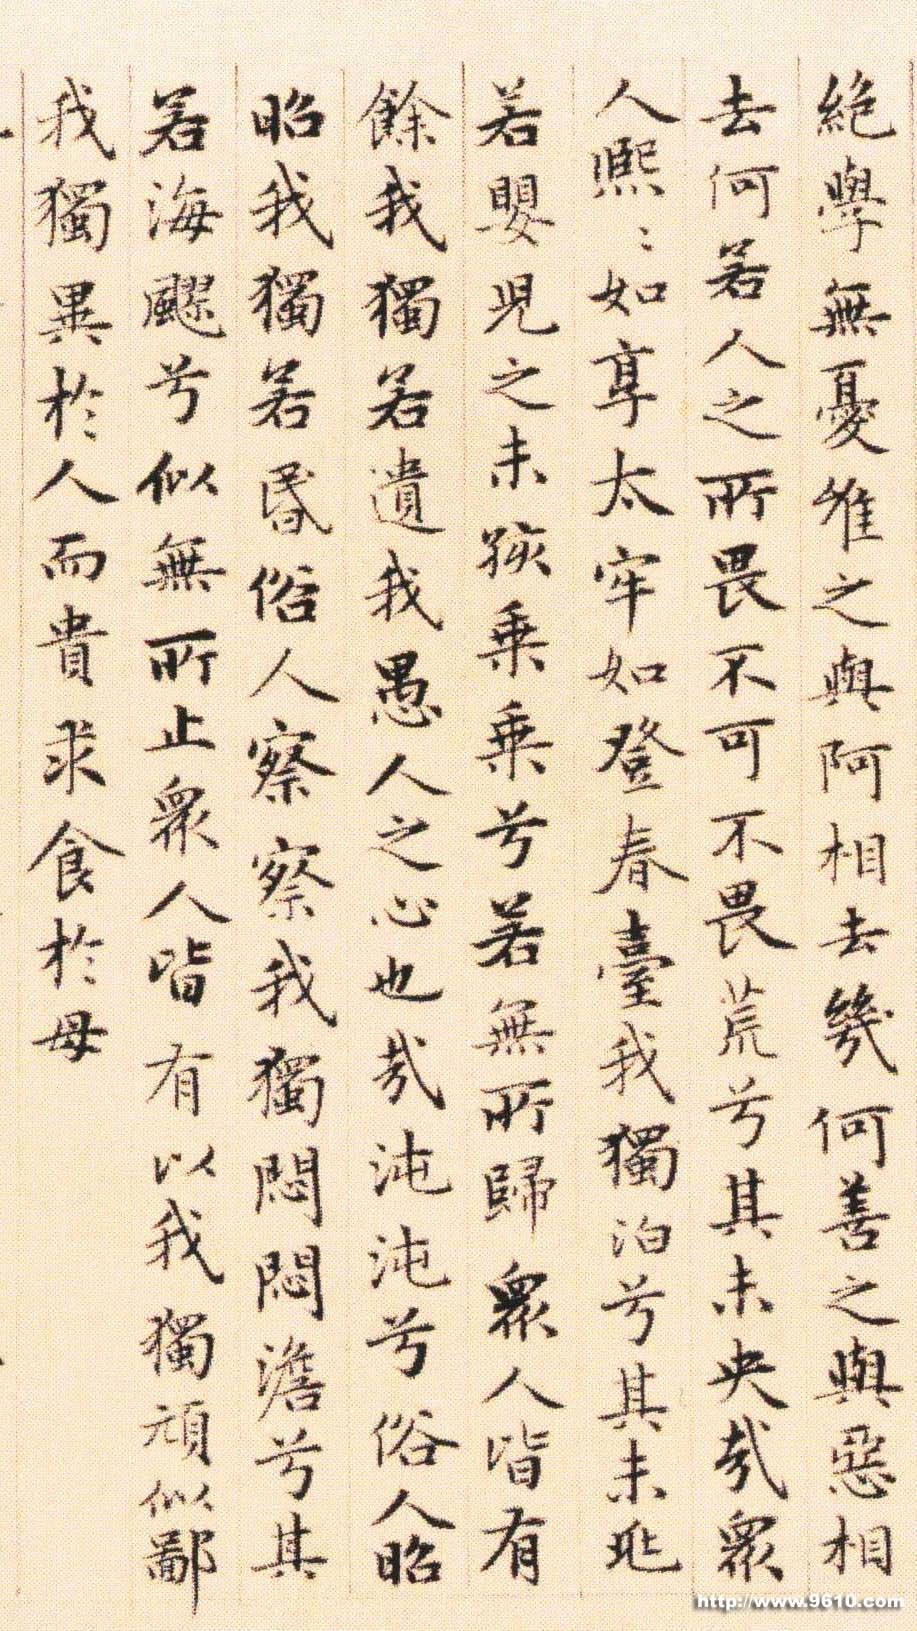 絶學無憂唯之與阿相去幾何善之與惡相
去何若人之所畏不可不畏荒兮其未央哉衆
人熙〻如享太牢如登春臺我獨泊兮其未兆
若嬰兒之未孩乗乗兮若無所歸衆人皆有
餘我獨若遺我愚人之心也哉沌沌兮俗人昭
昭我獨若昏俗人察察我獨悶悶澹兮其
若海飂兮似無所止衆人皆有以我獨頑似鄙
我獨異於人而貴求食於母
http://www.9610.com